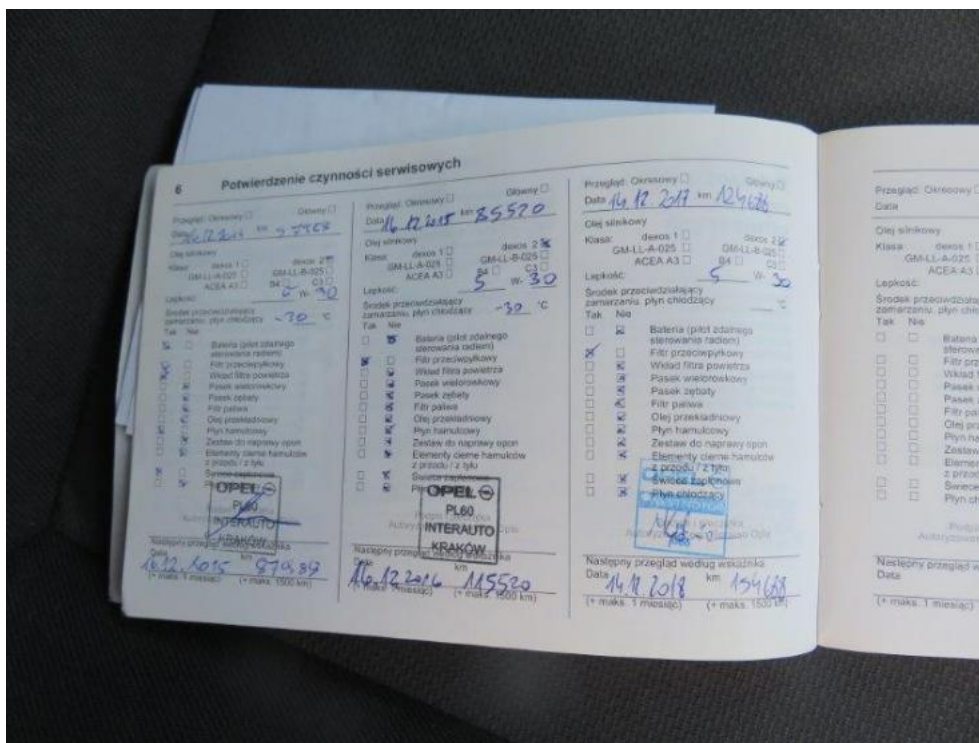 6 Potwierdzenie czynności serwisowych
Przegląd: Okresowy Główny
Data 16.12.2014 km
Olej silnikowy
Klasa: dexos 1 dexos 2
GM-LL-A-025 GM-LL-B-025
ACEA A3 B4 C3
Lepkość: 5 W- 30
Środek przeciwdziałający
zamarzaniu, płyn chłodzący -30 °C
Tak Nie
Bateria (pilot zdalnego
sterowania radiem)
Filtr przeciwpyłkowy
Wkład filtra powietrza
Pasek wielorowkowy
Pasek zębaty
Filtr paliwa
Olej przekładniowy
Płyn hamulcowy
Zestaw do naprawy opon
Elementy cierne hamulców
z przodu / z tyłu
Świece zapłonowe
OPEL
PL60
INTERAUTO
KRAKÓW
Następny przegląd według wskaźnika
Data km
16.12.2015 87989
(+ maks. 1 miesiąc) (+ maks. 1500 km)
Przegląd: Okresowy Główny
Data 16.12.2015 km 85520
Olej silnikowy
Klasa: dexos 1 dexos 2
GM-LL-A-025 GM-LL-B-025
ACEA A3 B4 C3
Lepkość: 5 W- 30
Środek przeciwdziałający
zamarzaniu, płyn chłodzący -30 °C
Tak Nie
Bateria (pilot zdalnego
sterowania radiem)
Filtr przeciwpyłkowy
Wkład filtra powietrza
Pasek wielorowkowy
Pasek zębaty
Filtr paliwa
Olej przekładniowy
Płyn hamulcowy
Zestaw do naprawy opon
Elementy cierne hamulców
z przodu / z tyłu
Świece zapłonowe
OPEL
PL60
INTERAUTO
KRAKÓW
Następny przegląd według wskaźnika
Data km
16.12.2016 115520
(+ maks. 1 miesiąc) (+ maks. 1500 km)
Przegląd: Okresowy Główny
Data 14.12 2017 km 124688
Olej silnikowy
Klasa: dexos 1 dexos 2
GM-LL-A-025 GM-LL-B-025
ACEA A3 B4 C3
Lepkość: 5 W- 30
Środek przeciwdziałający
zamarzaniu, płyn chłodzący °C
Tak Nie
Bateria (pilot zdalnego
sterowania radiem)
Filtr przeciwpyłkowy
Wkład filtra powietrza
Pasek wielorowkowy
Pasek zębaty
Filtr paliwa
Olej przekładniowy
Płyn hamulcowy
Zestaw do naprawy opon
Elementy cierne hamulców
z przodu / z tyłu
Świece zapłonowe
Płyn chłodzący
Następny przegląd według wskaźnika
Data 14.12 2018 km 154688
(+ maks. 1 miesiąc) (+ maks. 1500 km)
Przegląd: Okresowy
Data
Olej silnikowy
Klasa: dexos 1
GM-LL-A-025
ACEA A3
Lepkość:
Środek
Tak Nie
Bateria
Filtr
Wkład
Pasek
Pasek
Filtr
Olej
Zestaw
Świece
Następny przegląd
Data
(+ maks. 1 miesiąc)